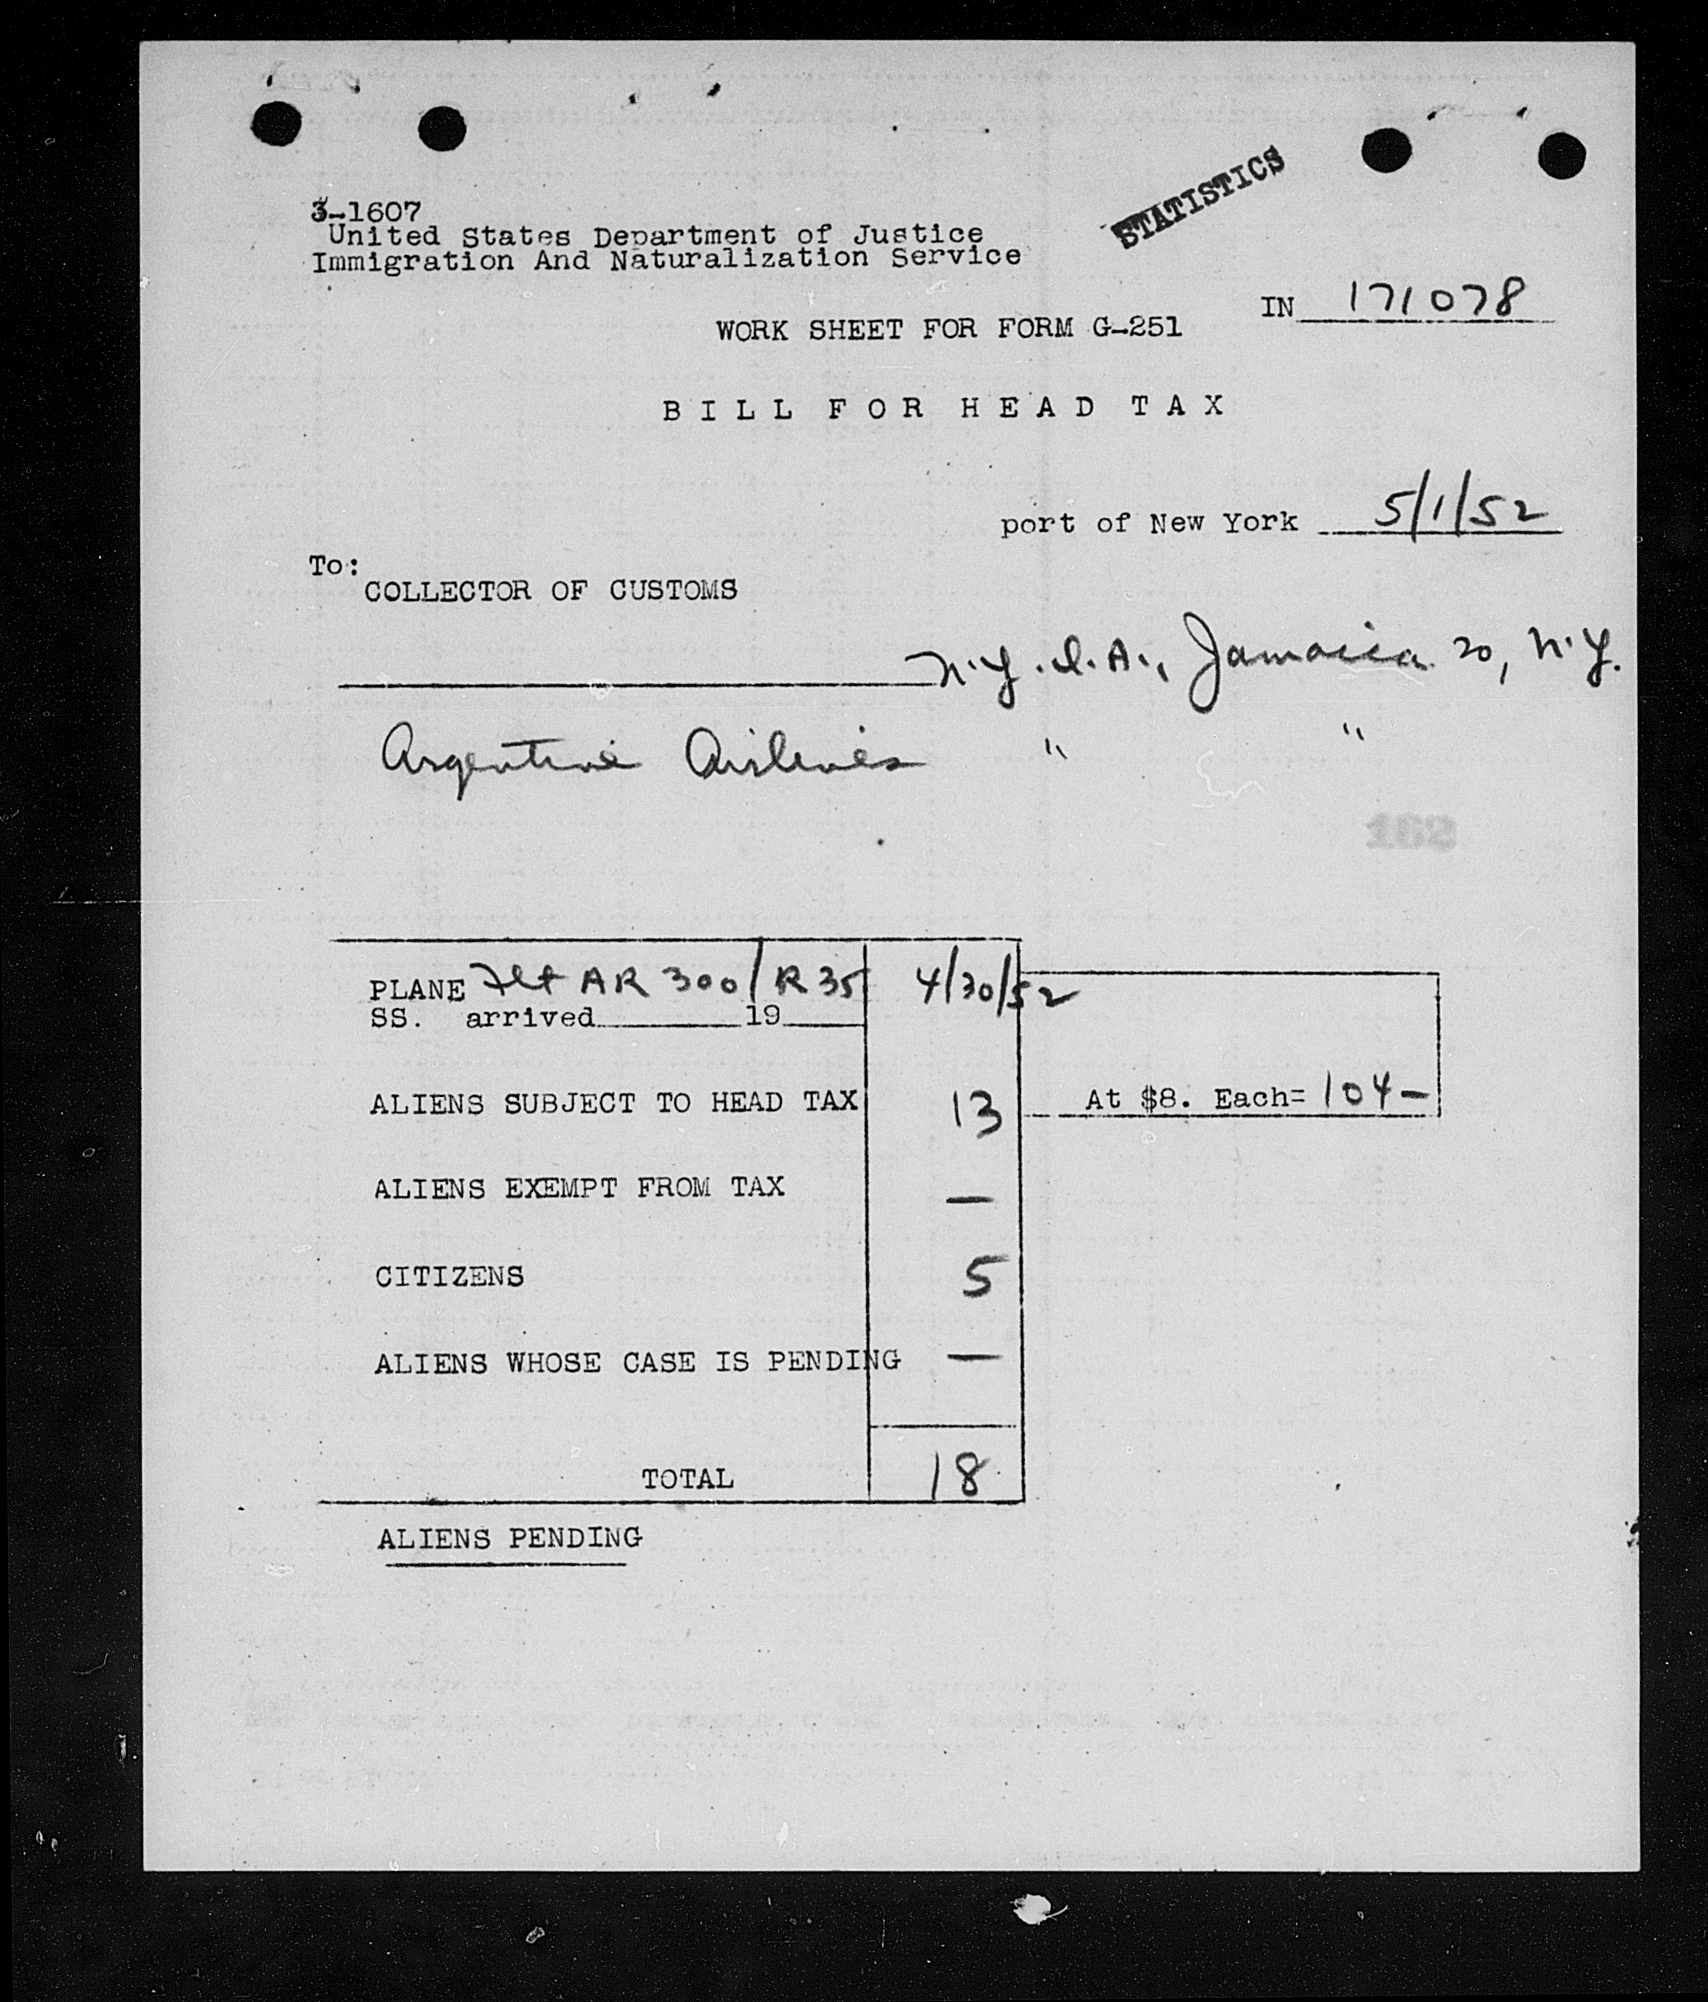 STATISTICS
3-1607
United States Department of Justice
Immigration And Naturalization Service
IN 171078
WORK SHEET FOR FORM G-251
BILL FOR HEAD TAX
port of New York 5/1/52
To:
COLLECTOR OF CUSTOMS
N.Y.I.A., Jamaica 20, N.Y.
Argentine Airlines " "
PLANE Flt AR 300/R35 4/30/52
SS. arrived 19
ALIENS SUBJECT TO HEAD TAX 13 At $8. Each= 104-
ALIENS EXEMPT FROM TAX —
CITIZENS 5
ALIENS WHOSE CASE IS PENDING —
TOTAL 18
ALIENS PENDING